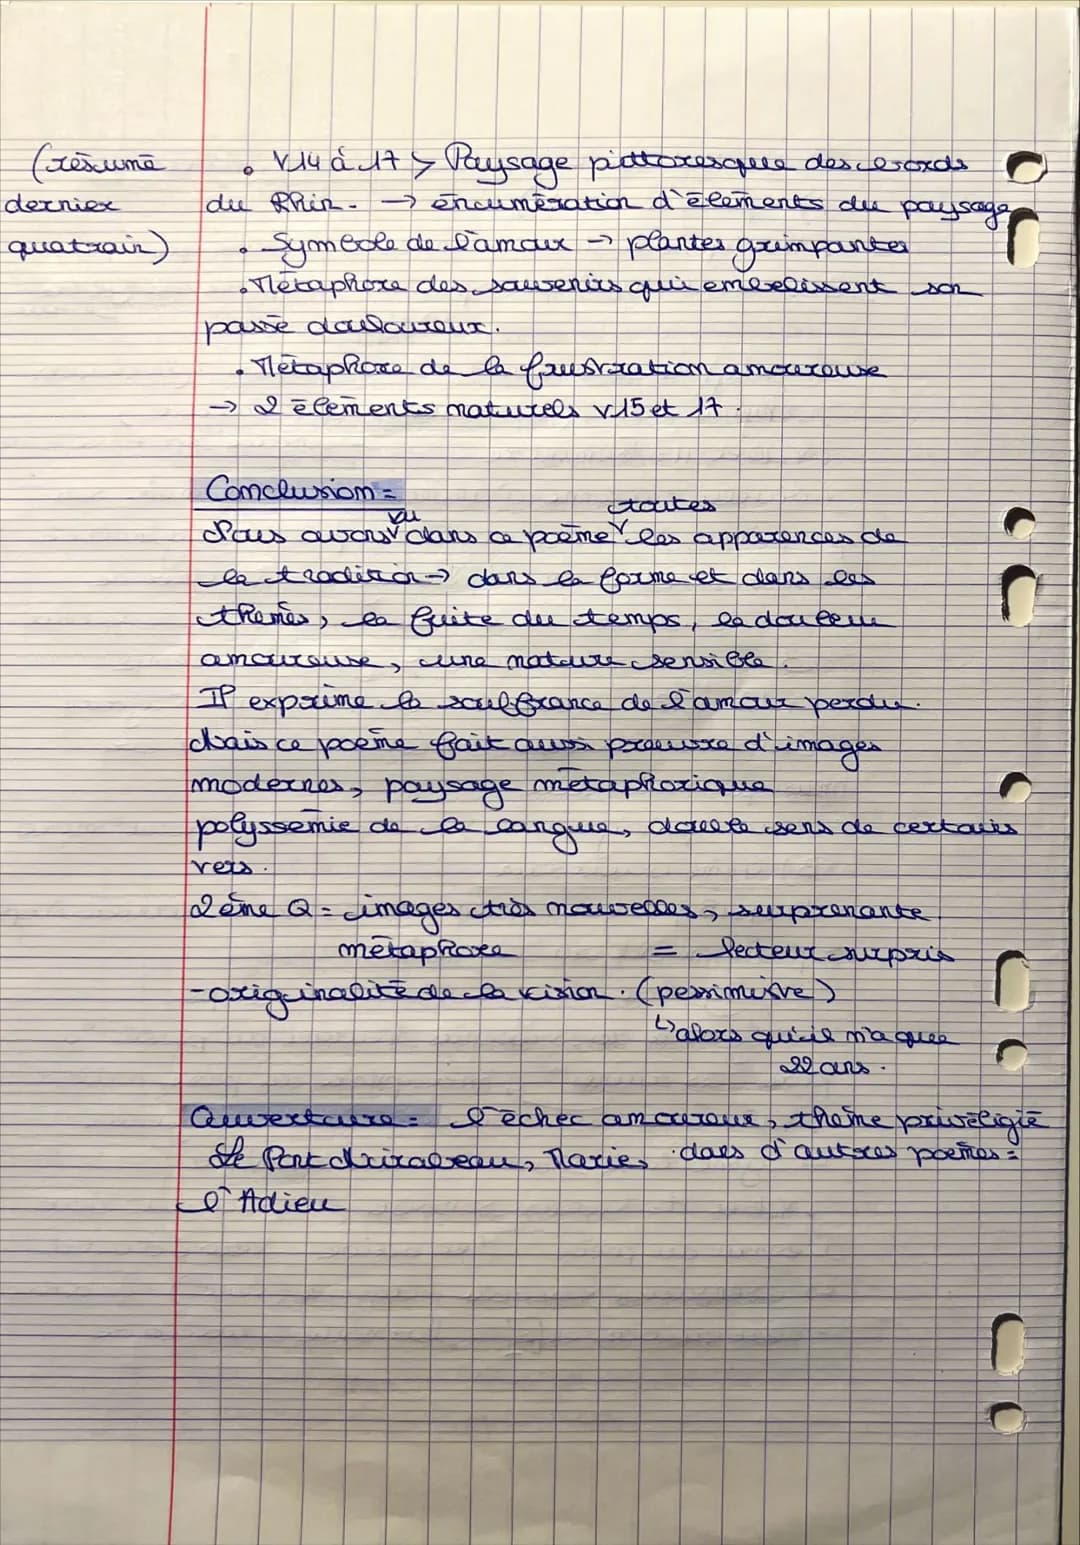 (résumé
dernier
quatrain)
• V14 à 17 > Paysage pittoresque des bords
du Rhin. → énumération d'éléments du paysage
• Symbole de l'amour → plantes grimpantes
• Métaphore des souvenirs qui embelissent son
passé douloureux.
• Métaphore de la frustration amoureuse
→ 2 éléments naturels v15 et 17.
Conclusion =
Nous avons vu dans ce poème toutes les apparences de
la tradition → dans la forme et dans les
thèmes, la fuite du temps, la douleur
amoureuse, une nature sensible.
Il exprime la souffrance de l'amour perdu.
Mais ce poème fait aussi preuve d'images
modernes, paysage métaphorique
polyssemie de la langue, double sens de certains
vers.
2ème Q = images très nouvelles, surprenante
métaphore = lecteur surpris
- originalité de la vision. (pessimiste)
↳ alors qu'il n'a que
22 ans.
Ouverture = l'échec amoureux, thème privélégié
dans d'autres poèmes =
Le Pont Mirabeau, Marie,
l'Adieu